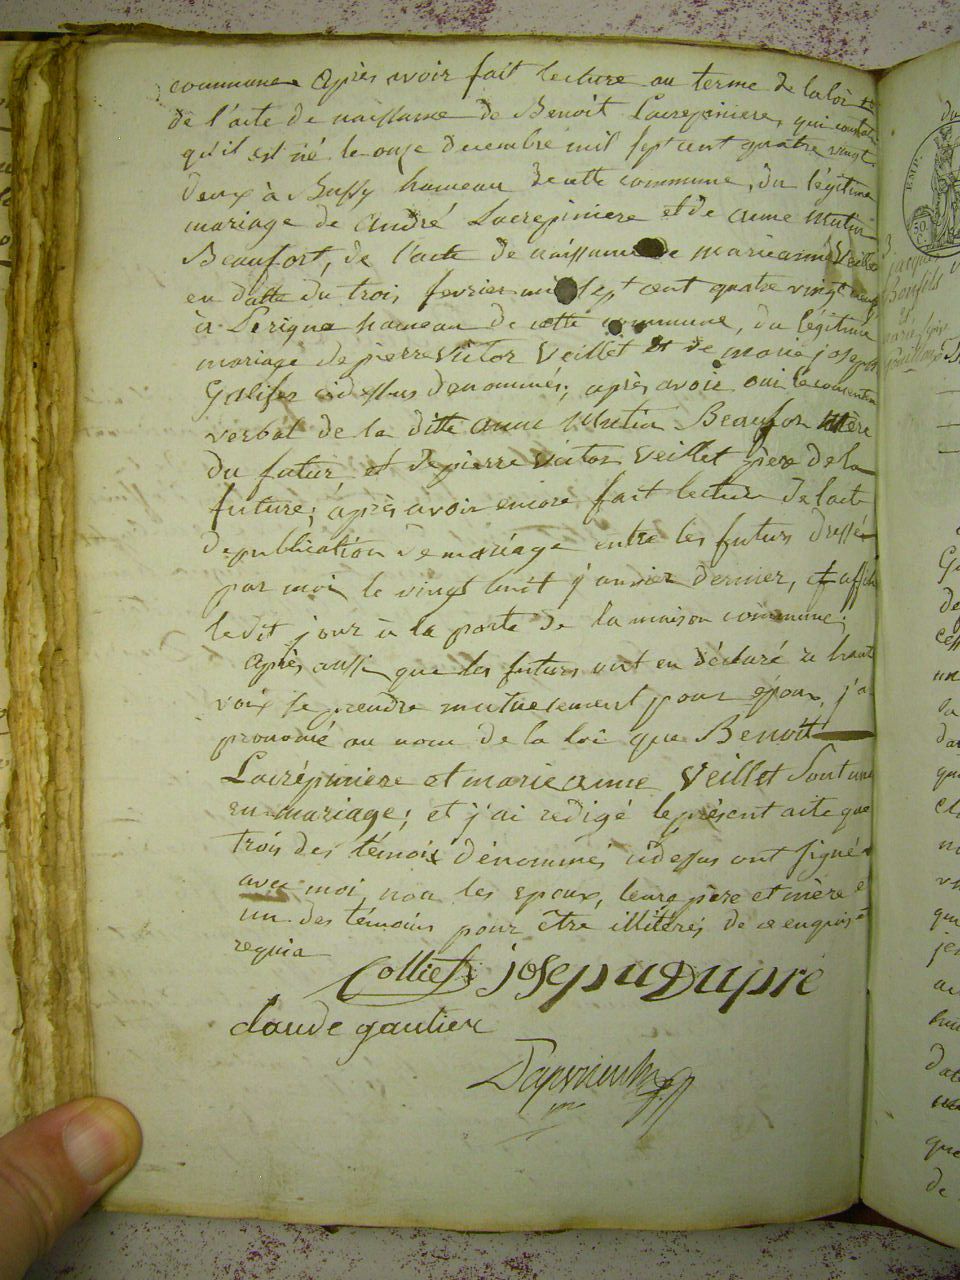 commune. après avoir fait lecture au terme de la loi
de l'acte de naissance de Benoit Lacrepiniere, qui constate
qu'il est né le onze decembre mil sept cent quatre vingt
deux à Bussy hameau de cette commune, du légitime
mariage de andré Lacrepiniere et de anne Mutin
Beaufort, de l'acte de naissance de marieanne Veillet
en datte du trois fevrier mil sept cent quatre vingt neuf
à hameau de cette commune, du légitime
mariage de pierre victor Veillet et de marie joseph
cidessus dénommés; après avoir oui le consenten
verbal de la ditte anne Mutin Beaufor Mère
du futur et de pierre victor Veillet père de la
future; après avoir encore fait lecture de l'acte
de publication de mariage entre les futurs dressé
par moi le vingt huit janvier dernier, et affiché
le dit jour à la porte de la maison commune;
après aussi que les futurs ont eu déclaré à haute
voix se prendre mutuelement pour époux, j'ai
prononcé au nom de la loi que Benoit
Lacrépiniere et marieanne Veillet sont unis
en mariage; et j'ai rédigé le présent acte que
trois des témoix dénommés cidessus ont signé
avec moi non les epoux, leurs père et mère et
un des témoins pour être illitérés de ce enquis et
requis
Collet joseph Dupré
claude gautier
EMP.
50.
jacques
Bonfils
et